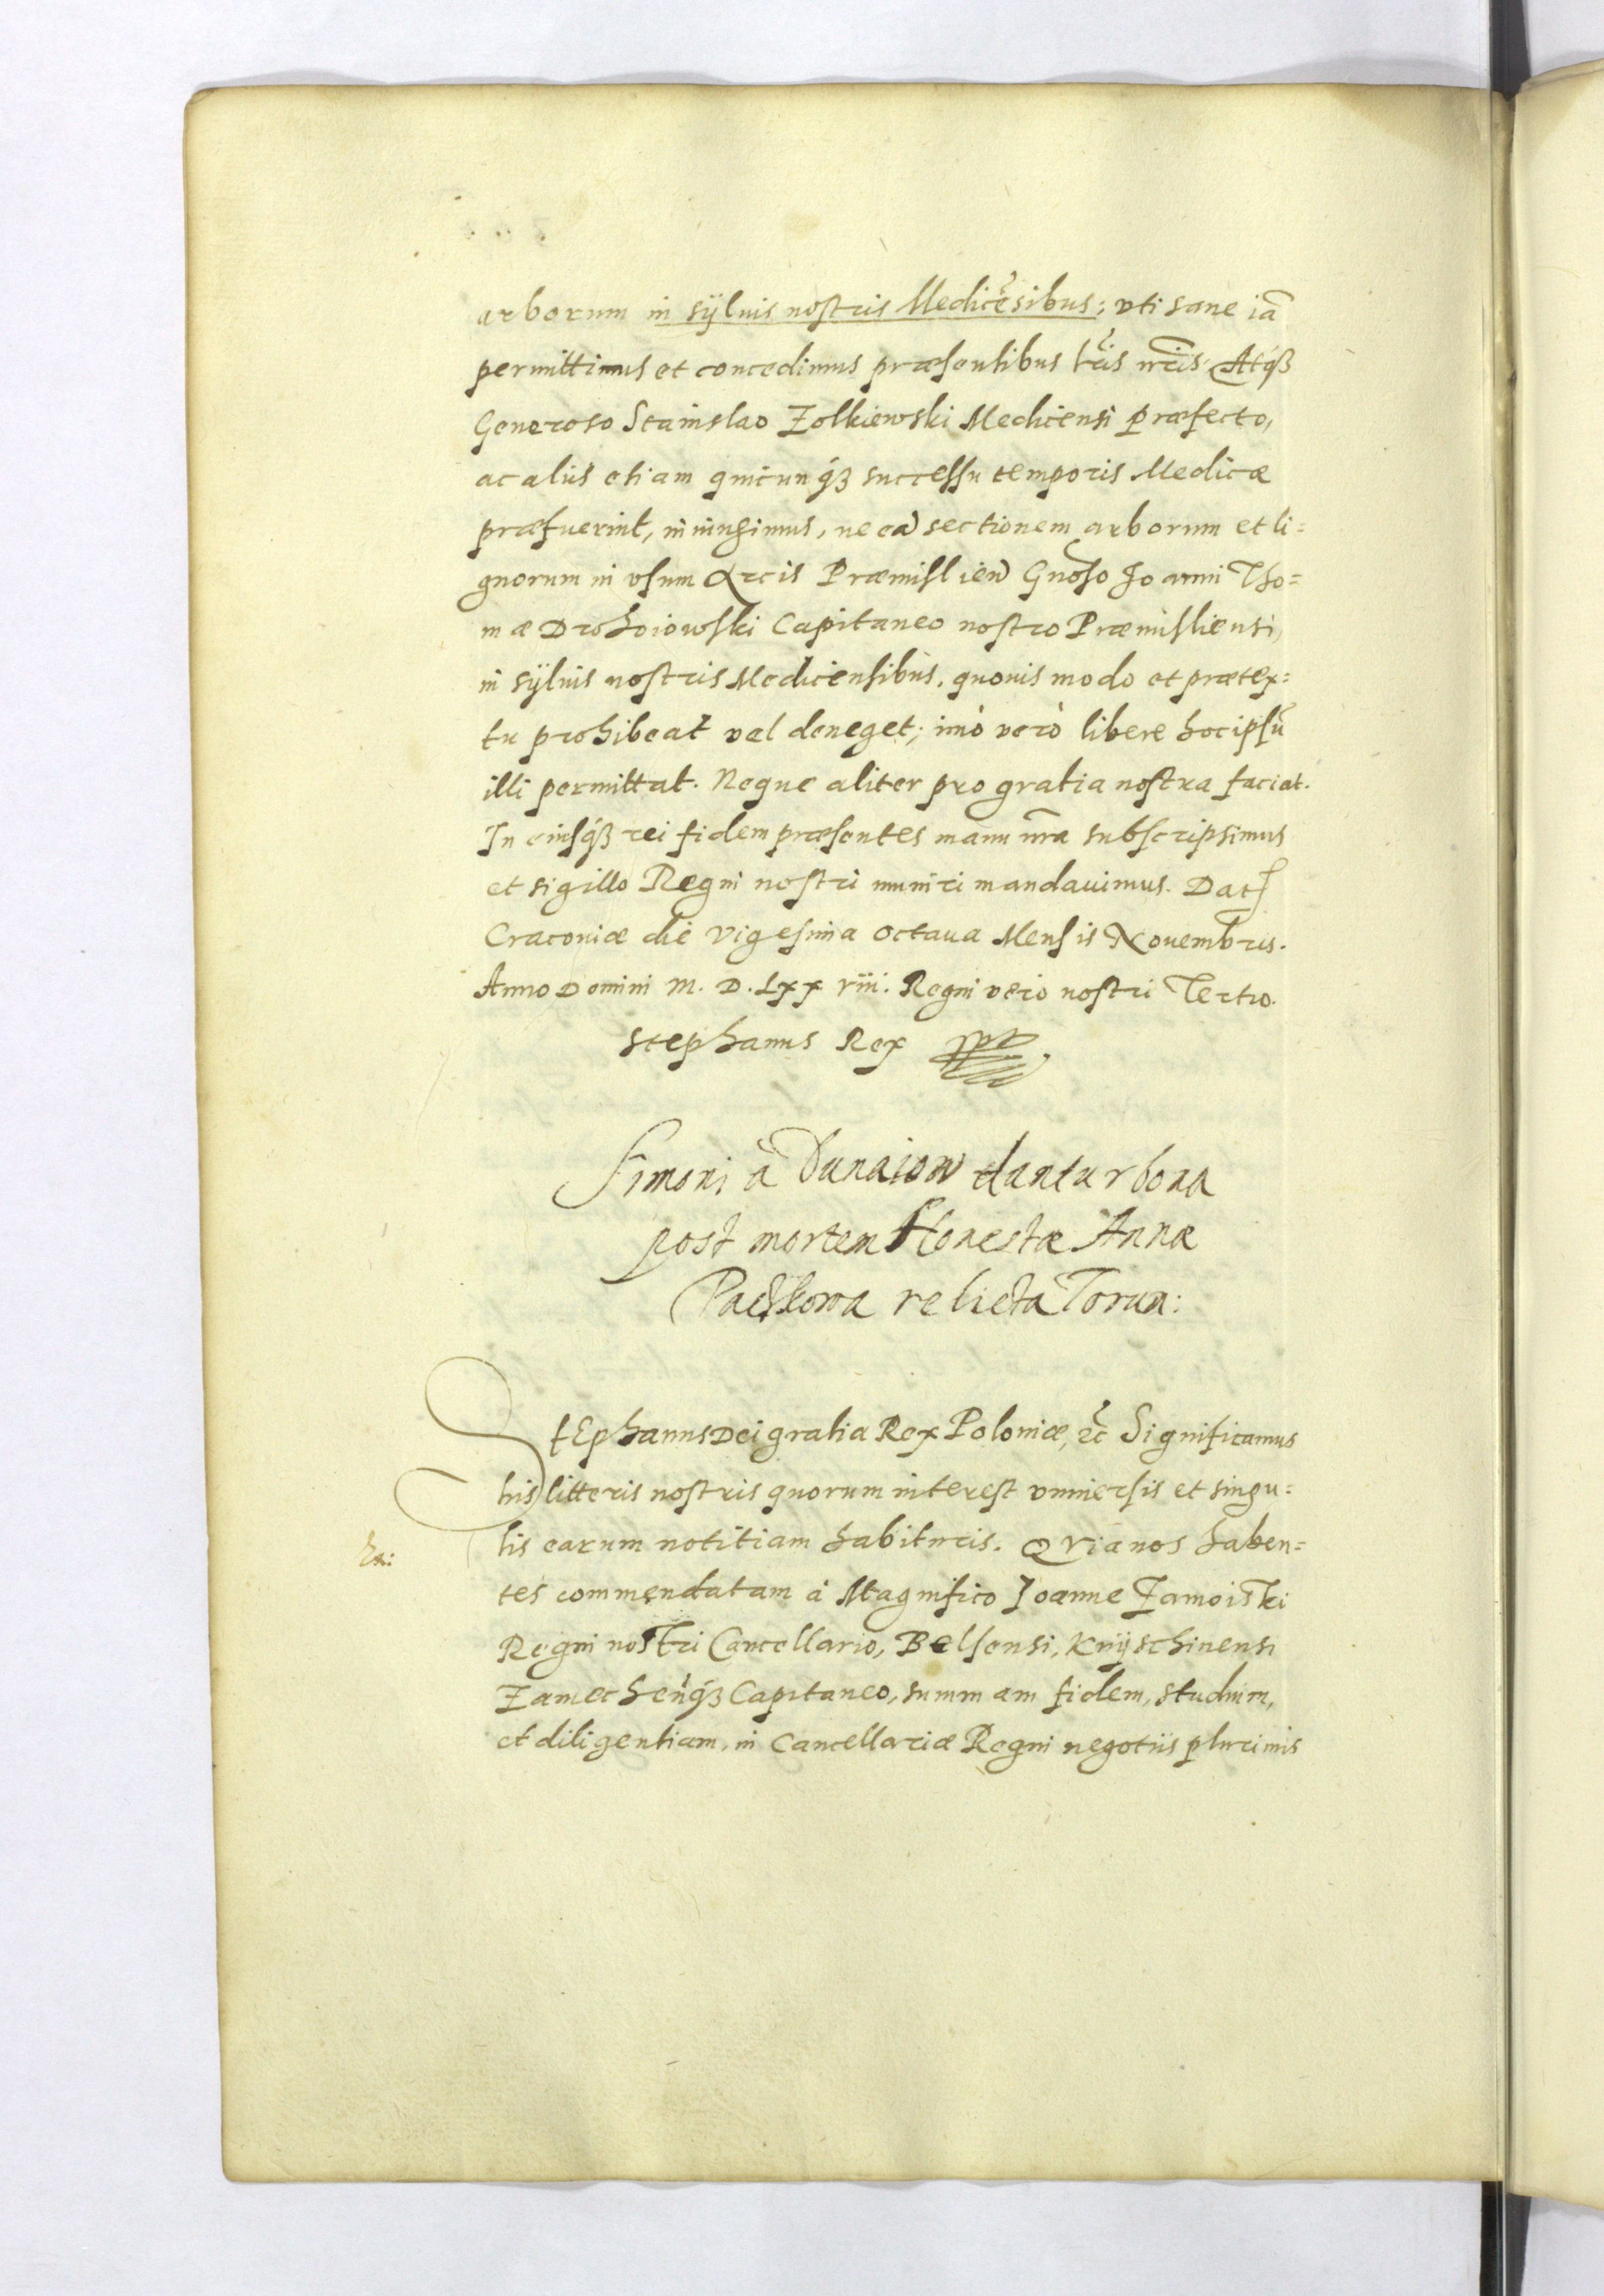 arborum in sÿluis nostris Medicēsibus; vti sane iā
permittimus et concedimus præsentibus lr̃is nr̃is. Atq́ʒ
Generoso Stanislao Zolkiewski Medicensi præfecto,
ac aliis etiam quicunq́ʒ successu temporis Medicæ
præfuerint, iniungimus, ne eā sectionem arborum et li=
gnorum in vsum Arcis Præmislień Gnoso Joanni Tho=
mæ Drohoiowski Capitaneo nostro Præmisliensi,
in sÿluis nostris Medicensibus, quouis modo et prætex=
tu prohibeat vel deneget; imò verò libere hoc ipsū
illi permittat. Neque aliter pro gratia nostra faciat.
In cuiusq́ʒ rei fidem præsentes manu nr̃a subscripsimus
et sigillo Regni nostri muniri mandauimus. Dat̃
Cracouiæ die vigesima octaua Mensis Nouembris.
Anno Domini M. D. Lxx viii. Regni vero nostri Tertio.
Stephanus Rex
Simoni à Dunaiow dantur bona
post mortem Honestæ Annæ
Paczkowa relicta Torun:
StEphanus Dei gratia Rex Poloniæ, &c̃ Significamus
his litteris nostris quorum interest vniuersis et singu=
lis earum notitiam habituris. Qvia nos haben=
tes commendatam à Magnifico Joanne Zamoiski
Regni nostri Cancellario, Belsensi, Knÿschinensi
Zamecheńq́ʒ Capitaneo, summam fidem, studium,
et diligentiam, in Cancellariæ Regni negotiis plurimis